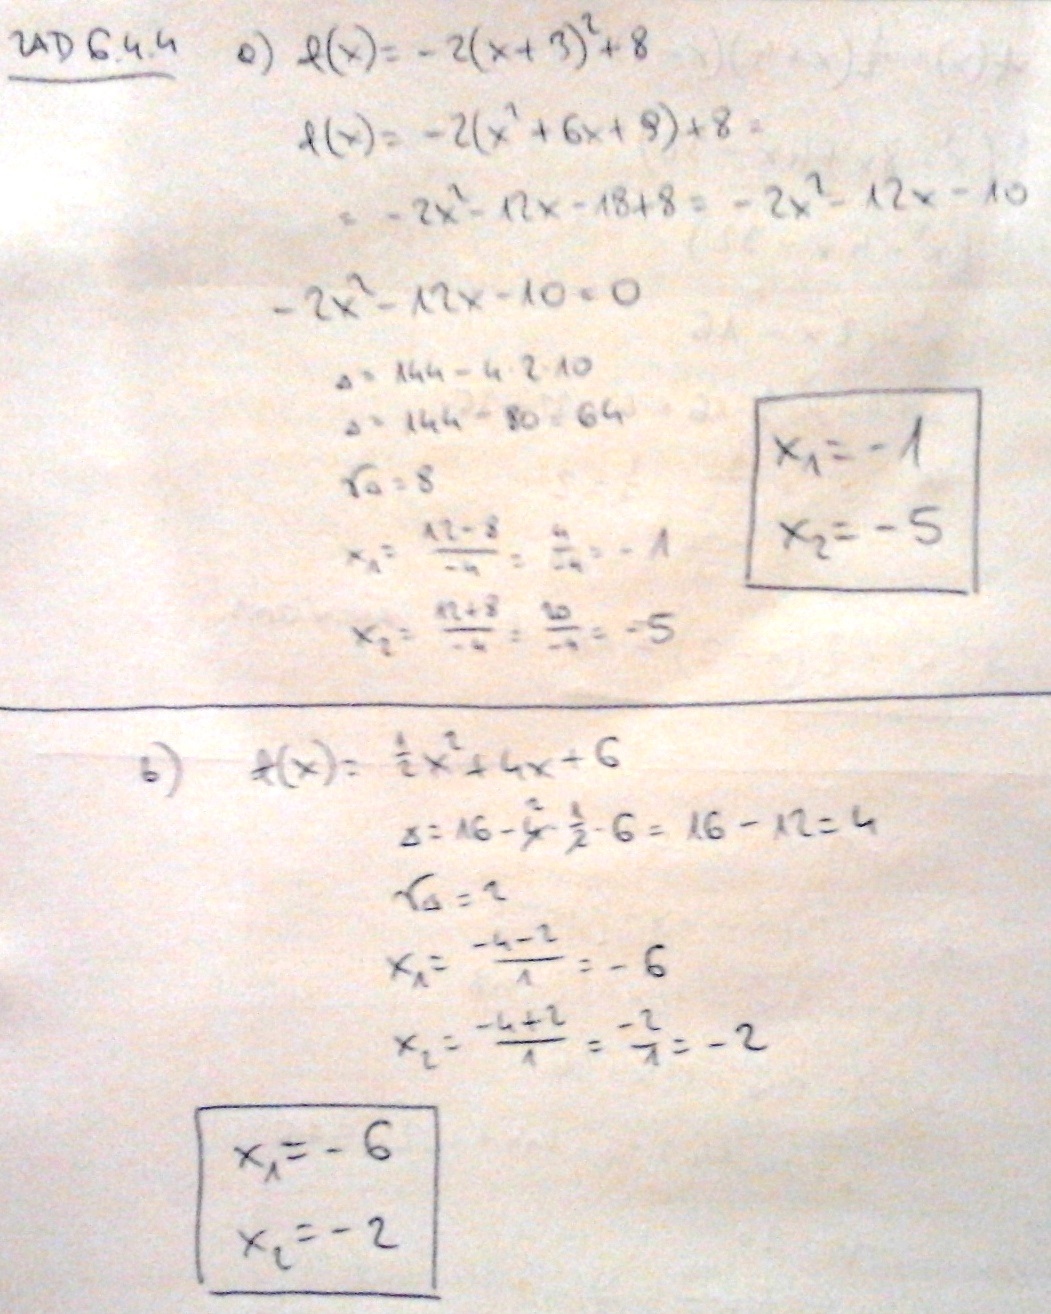 ZAD 6.4.4 a) f(x) = -2(x+3)²+8
f(x) = -2(x²+6x+9)+8 =
= -2x²-12x-18+8 = -2x²-12x-10
-2x²-12x-10=0
Δ = 144-4·2·10
Δ = 144-80=64
√Δ = 8
x₁ = (12-8)/(-4) = 4/(-4) = -1
x₂ = (12+8)/(-4) = 20/(-4) = -5
x₁ = -1
x₂ = -5
b) f(x) = 1/2x²+4x+6
Δ = 16-4·1/2·6 = 16-12=4
√Δ = 2
x₁ = (-4-2)/1 = -6
x₂ = (-4+2)/1 = -2/1 = -2
x₁ = -6
x₂ = -2